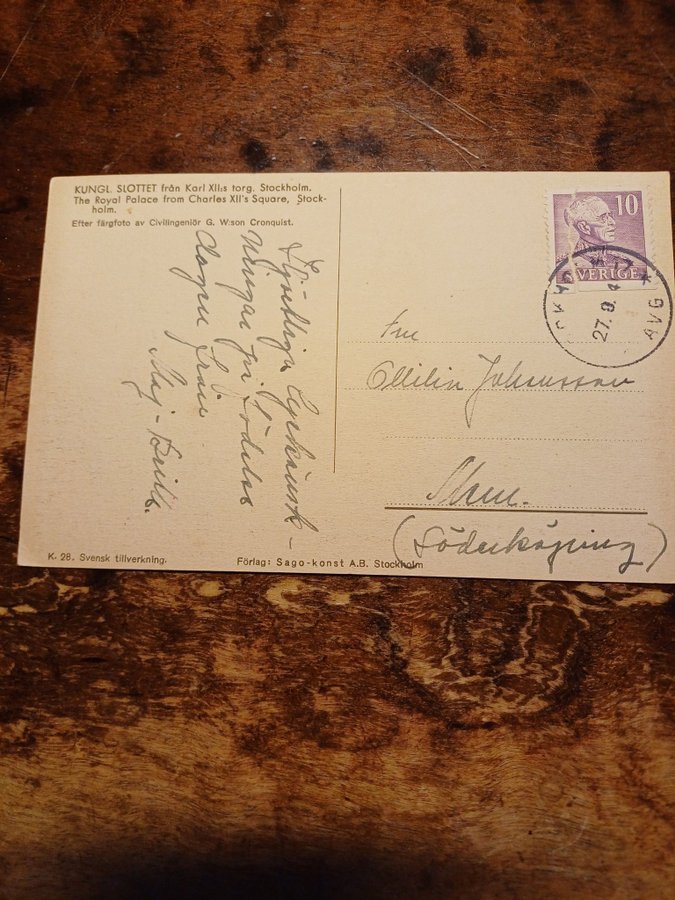 KUNGL. SLOTTET från Karl XII:s torg. Stockholm.
The Royal Palace from Charles XII's Square, Stock-
holm.
Efter färgfoto av Civilingeniör G. W:son Cronquist.
Hjärtliga Lyckönsk-
ningar på Födelse
dagen från
Maj-Britt.
10
SVERIGE
27.9.4
AVG
Fru
Johansson
(Söderköping)
K. 28. Svensk tillverkning.
Förlag: Sago-konst A.B. Stockholm